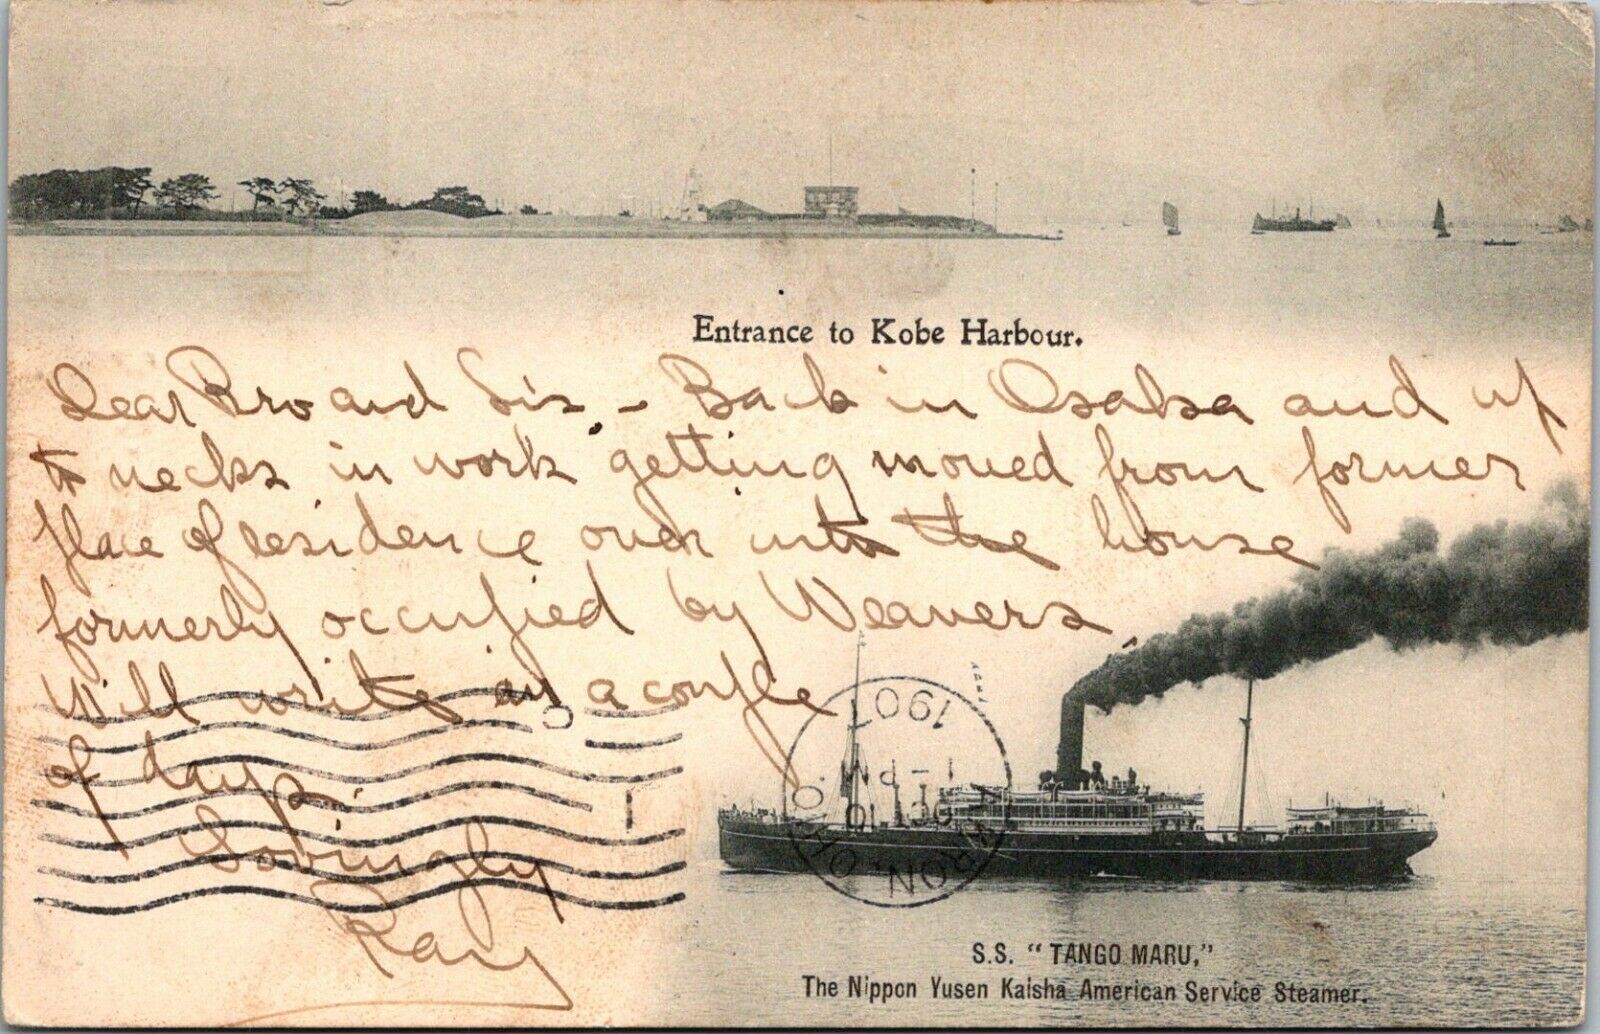 Entrance to Kobe Harbour.
Dear Bro and Sis, - Back in Osaka and up
to necks in work getting moved from former
place of residence over into the house
formerly occupied by Weavers.
Will write in a couple
of days.
Lovingly
Ray
AKRON, OHIO.
1907
S.S. "TANGO MARU,"
The Nippon Yusen Kaisha American Service Steamer.